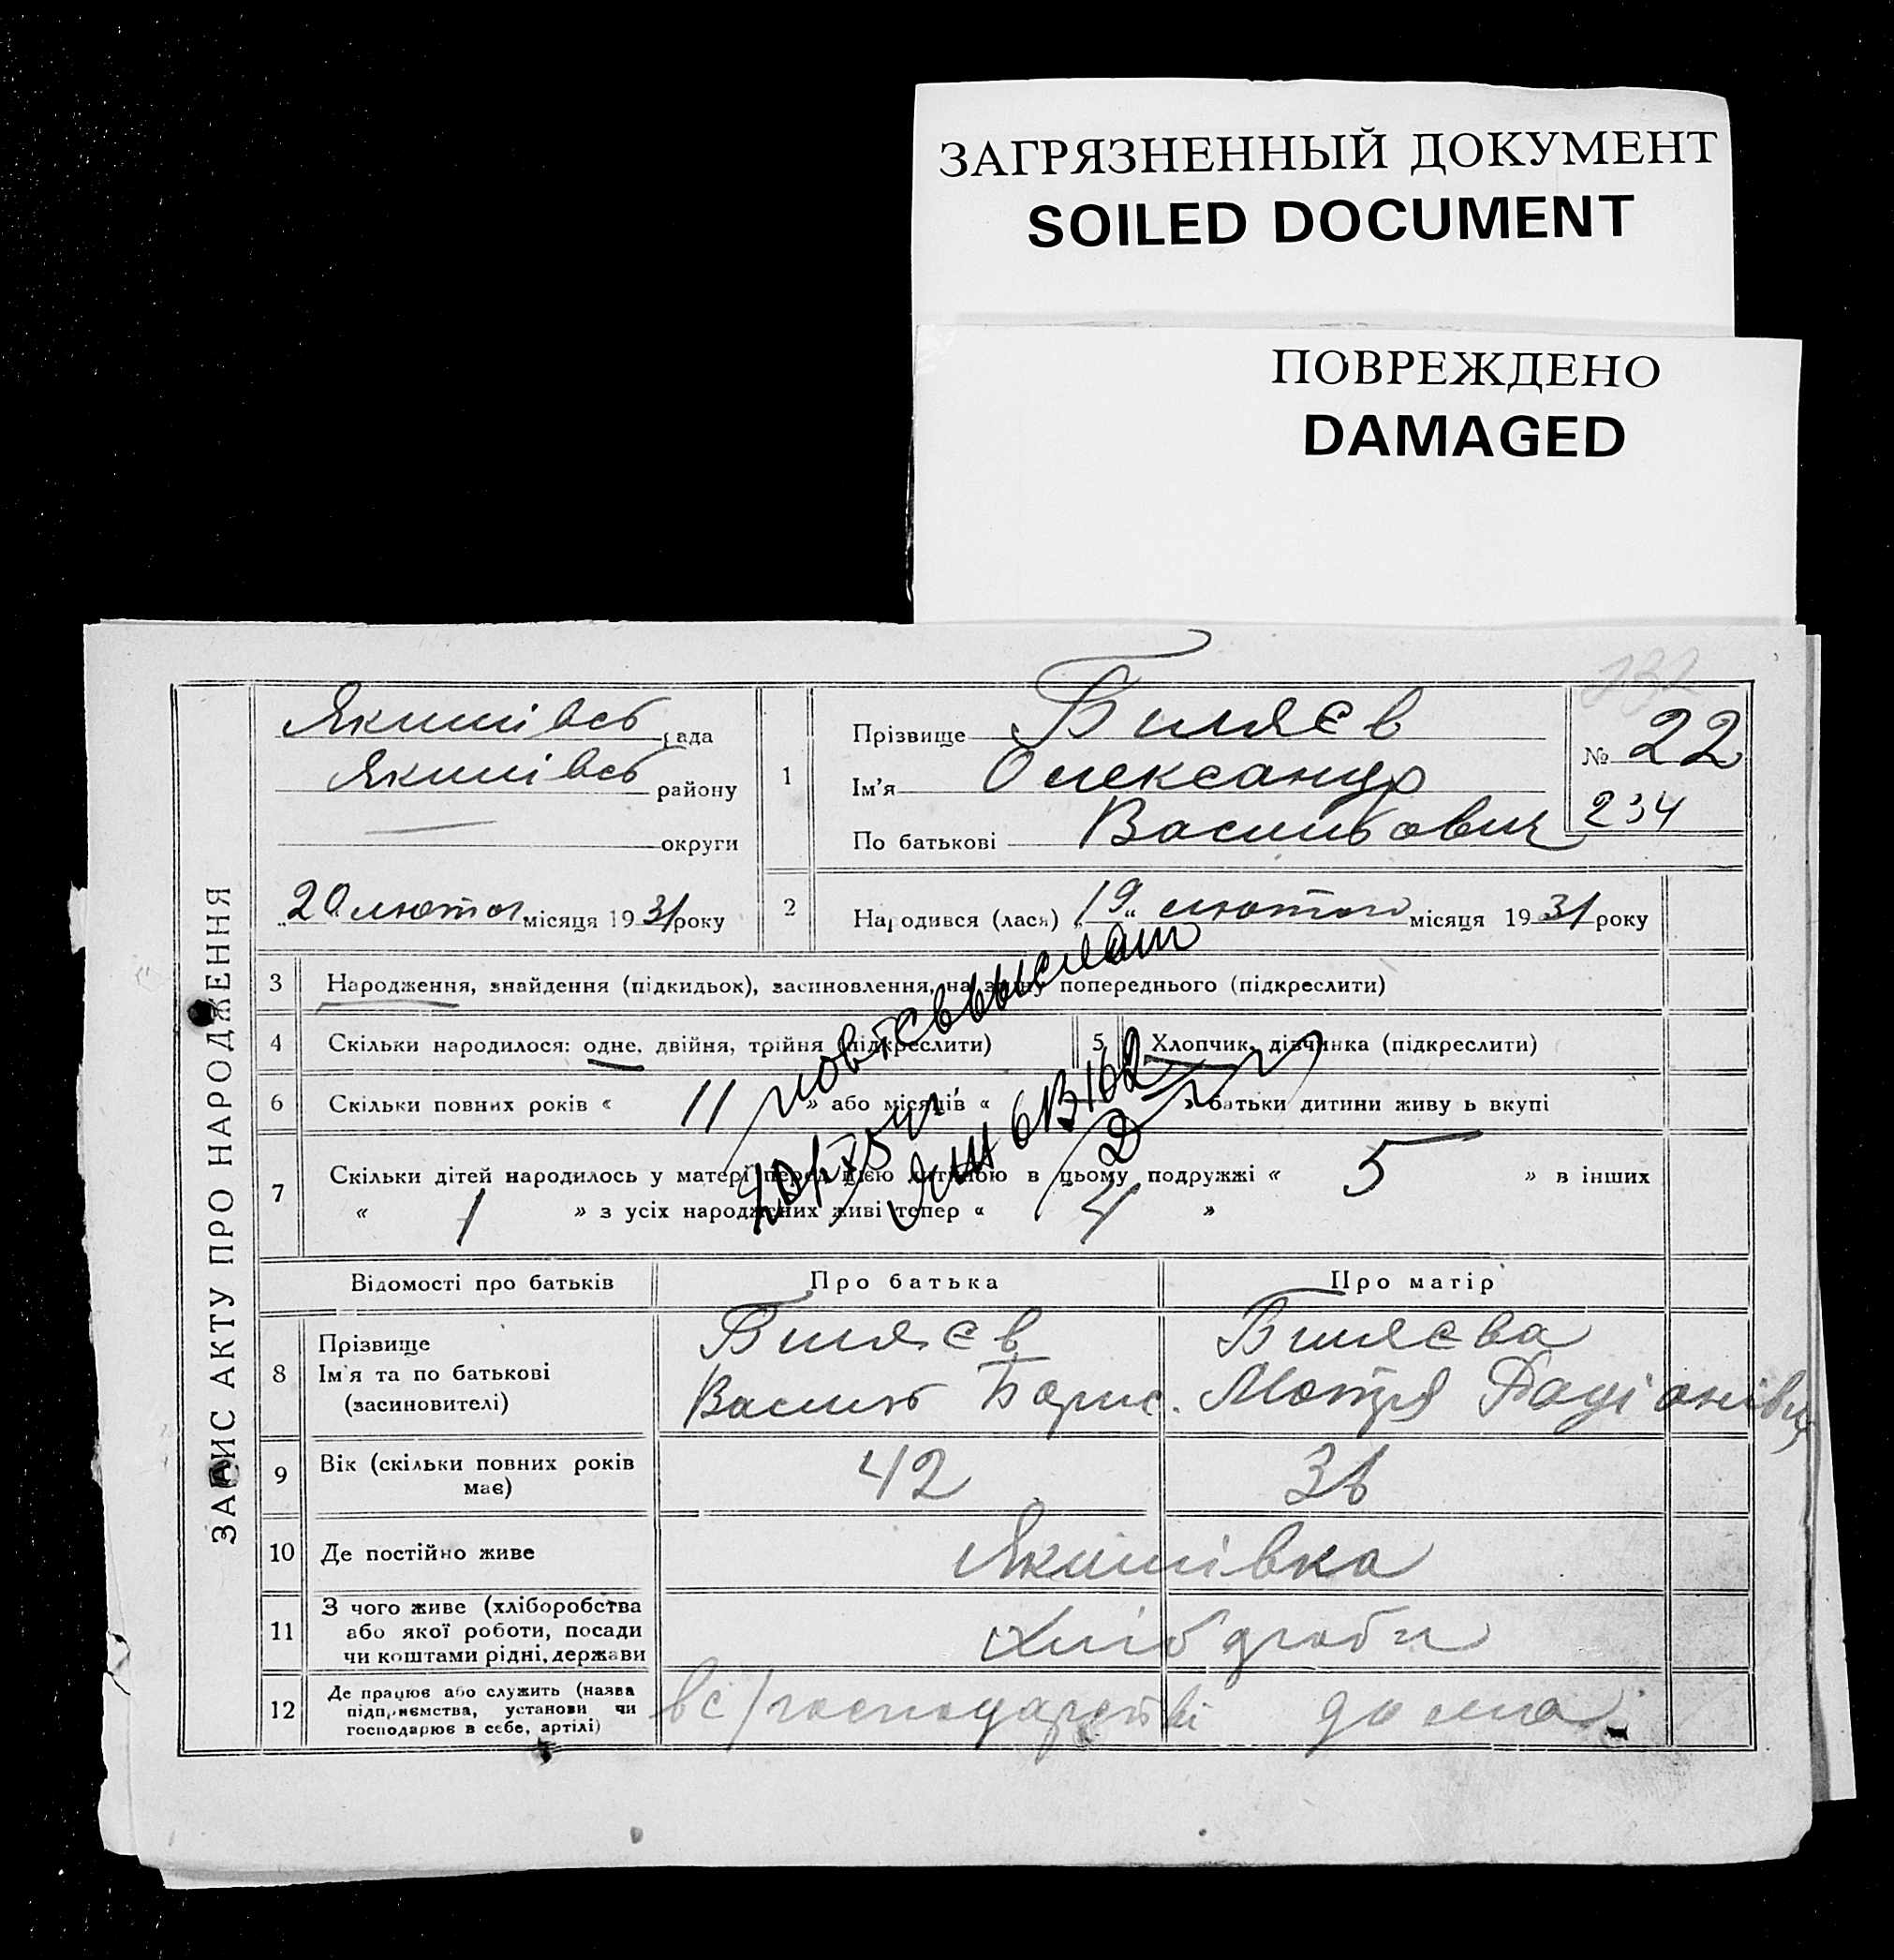 ЗАГРЯЗНЕННЫЙ ДОКУМЕНТ
SOILED DOCUMENT
ПОВРЕЖДЕНО
DAMAGED
ЗАПИС АКТУ ПРО НАРОДЖЕННЯ
Якимівсь рада
Якимівсь району
— округи
„20 лютого місяця 1931 року
1
Прізвище Биляєв
Ім'я Олександр
По батькові Васильович
№ 22
234
2
Народився (лася) „19“ лютого місяця 1931 року
3 Народження, знайдення (підкидьок), засиновлення, на зміну попереднього (підкреслити)
4 Скільки народилося: одне, двійня, трійня (підкреслити) 5 Хлопчик, дівчинка (підкреслити)
6 Скільки повних років « 11 » або місяців « » батьки дитини живуть вкупі
7 Скільки дітей народилось у матері перед цією дитиною в цьому подружжі « 5 » в інших
« 1 » з усіх народжених живі тепер « 4 »
Відомості про батьків Про батька Про матір
8 Прізвище Биляєв Биляєва
Ім'я та по батькові Василь Борис. Мотря Радіонівна
(засиновителі)
9 Вік (скільки повних років має) 42
10 Де постійно живе Якимівка
11 З чого живе (хліборобства
або якої роботи, посади
чи коштами рідні, держави
12 Де працює або служить (назва
підприємства, установи чи
господарює в себе, артілі)
в с/господарстві дома